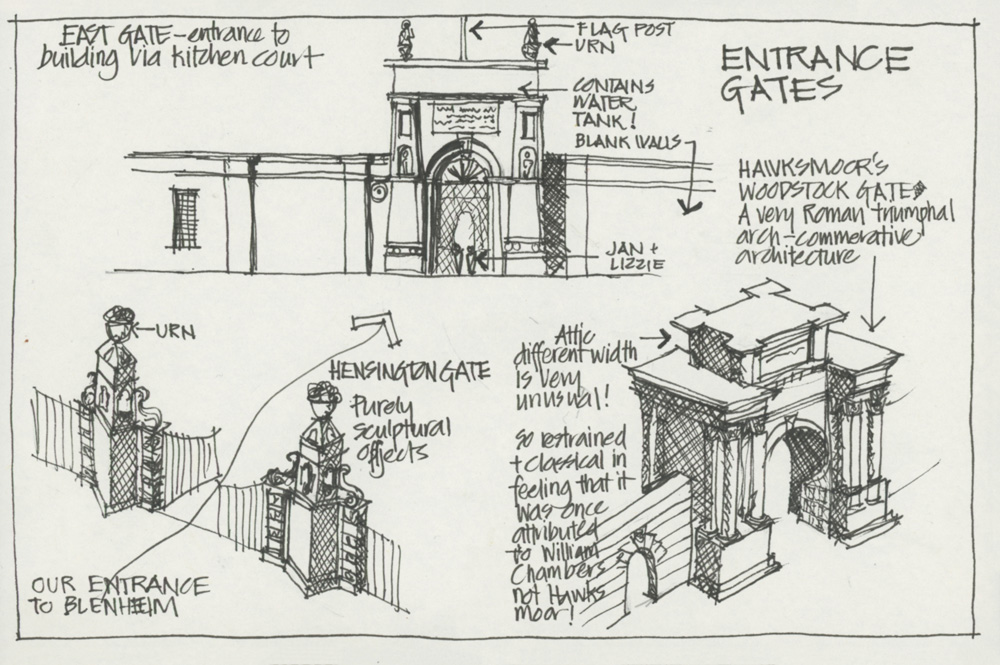 EAST GATE-entrance to
building via kitchen court
FLAG POST
URN
CONTAINS
WATER
TANK!
BLANK WALLS
JAN +
LIZZIE
ENTRANCE
GATES
HAWKSMOOR'S
WOODSTOCK GATE
A very Roman triumphal
arch-commerative
architecture
URN
HENSINGTON GATE
Purely
sculptural
offects
OUR ENTRANCE
TO BLENHEIM
Attic
different width
is very
unusual!
So restrained
+ classical in
feeling that it
was once
attributed
to William
Chambers
not Hawks
moor!